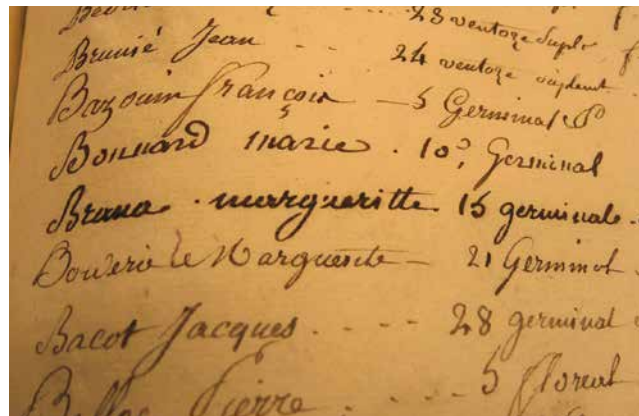 23 ventoze
Brunié Jean - - 24 ventoze
Bazouin françois - 5 Germinal
Bonnard marie . 10 Germinal
Brana . margueritte 15 germinale .
Marguerite - 21 Germinal
Bacot Jacques . - - - 28 germinal
Pierre - - - 5 floreal